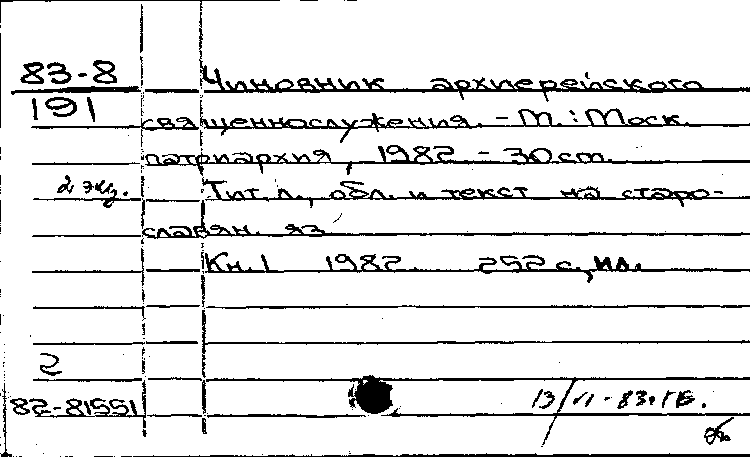 83-8 Чиновник архиерейского
191
священнослужения. - М.: Моск.
патриархия, 1982. - 30 cm.
2 экз. Тит. л., обл. и текст на старо-
славян. яз
Кн. 1 1982. 292 с., ил.
2
82-81551
13/VI-83. ГБ.